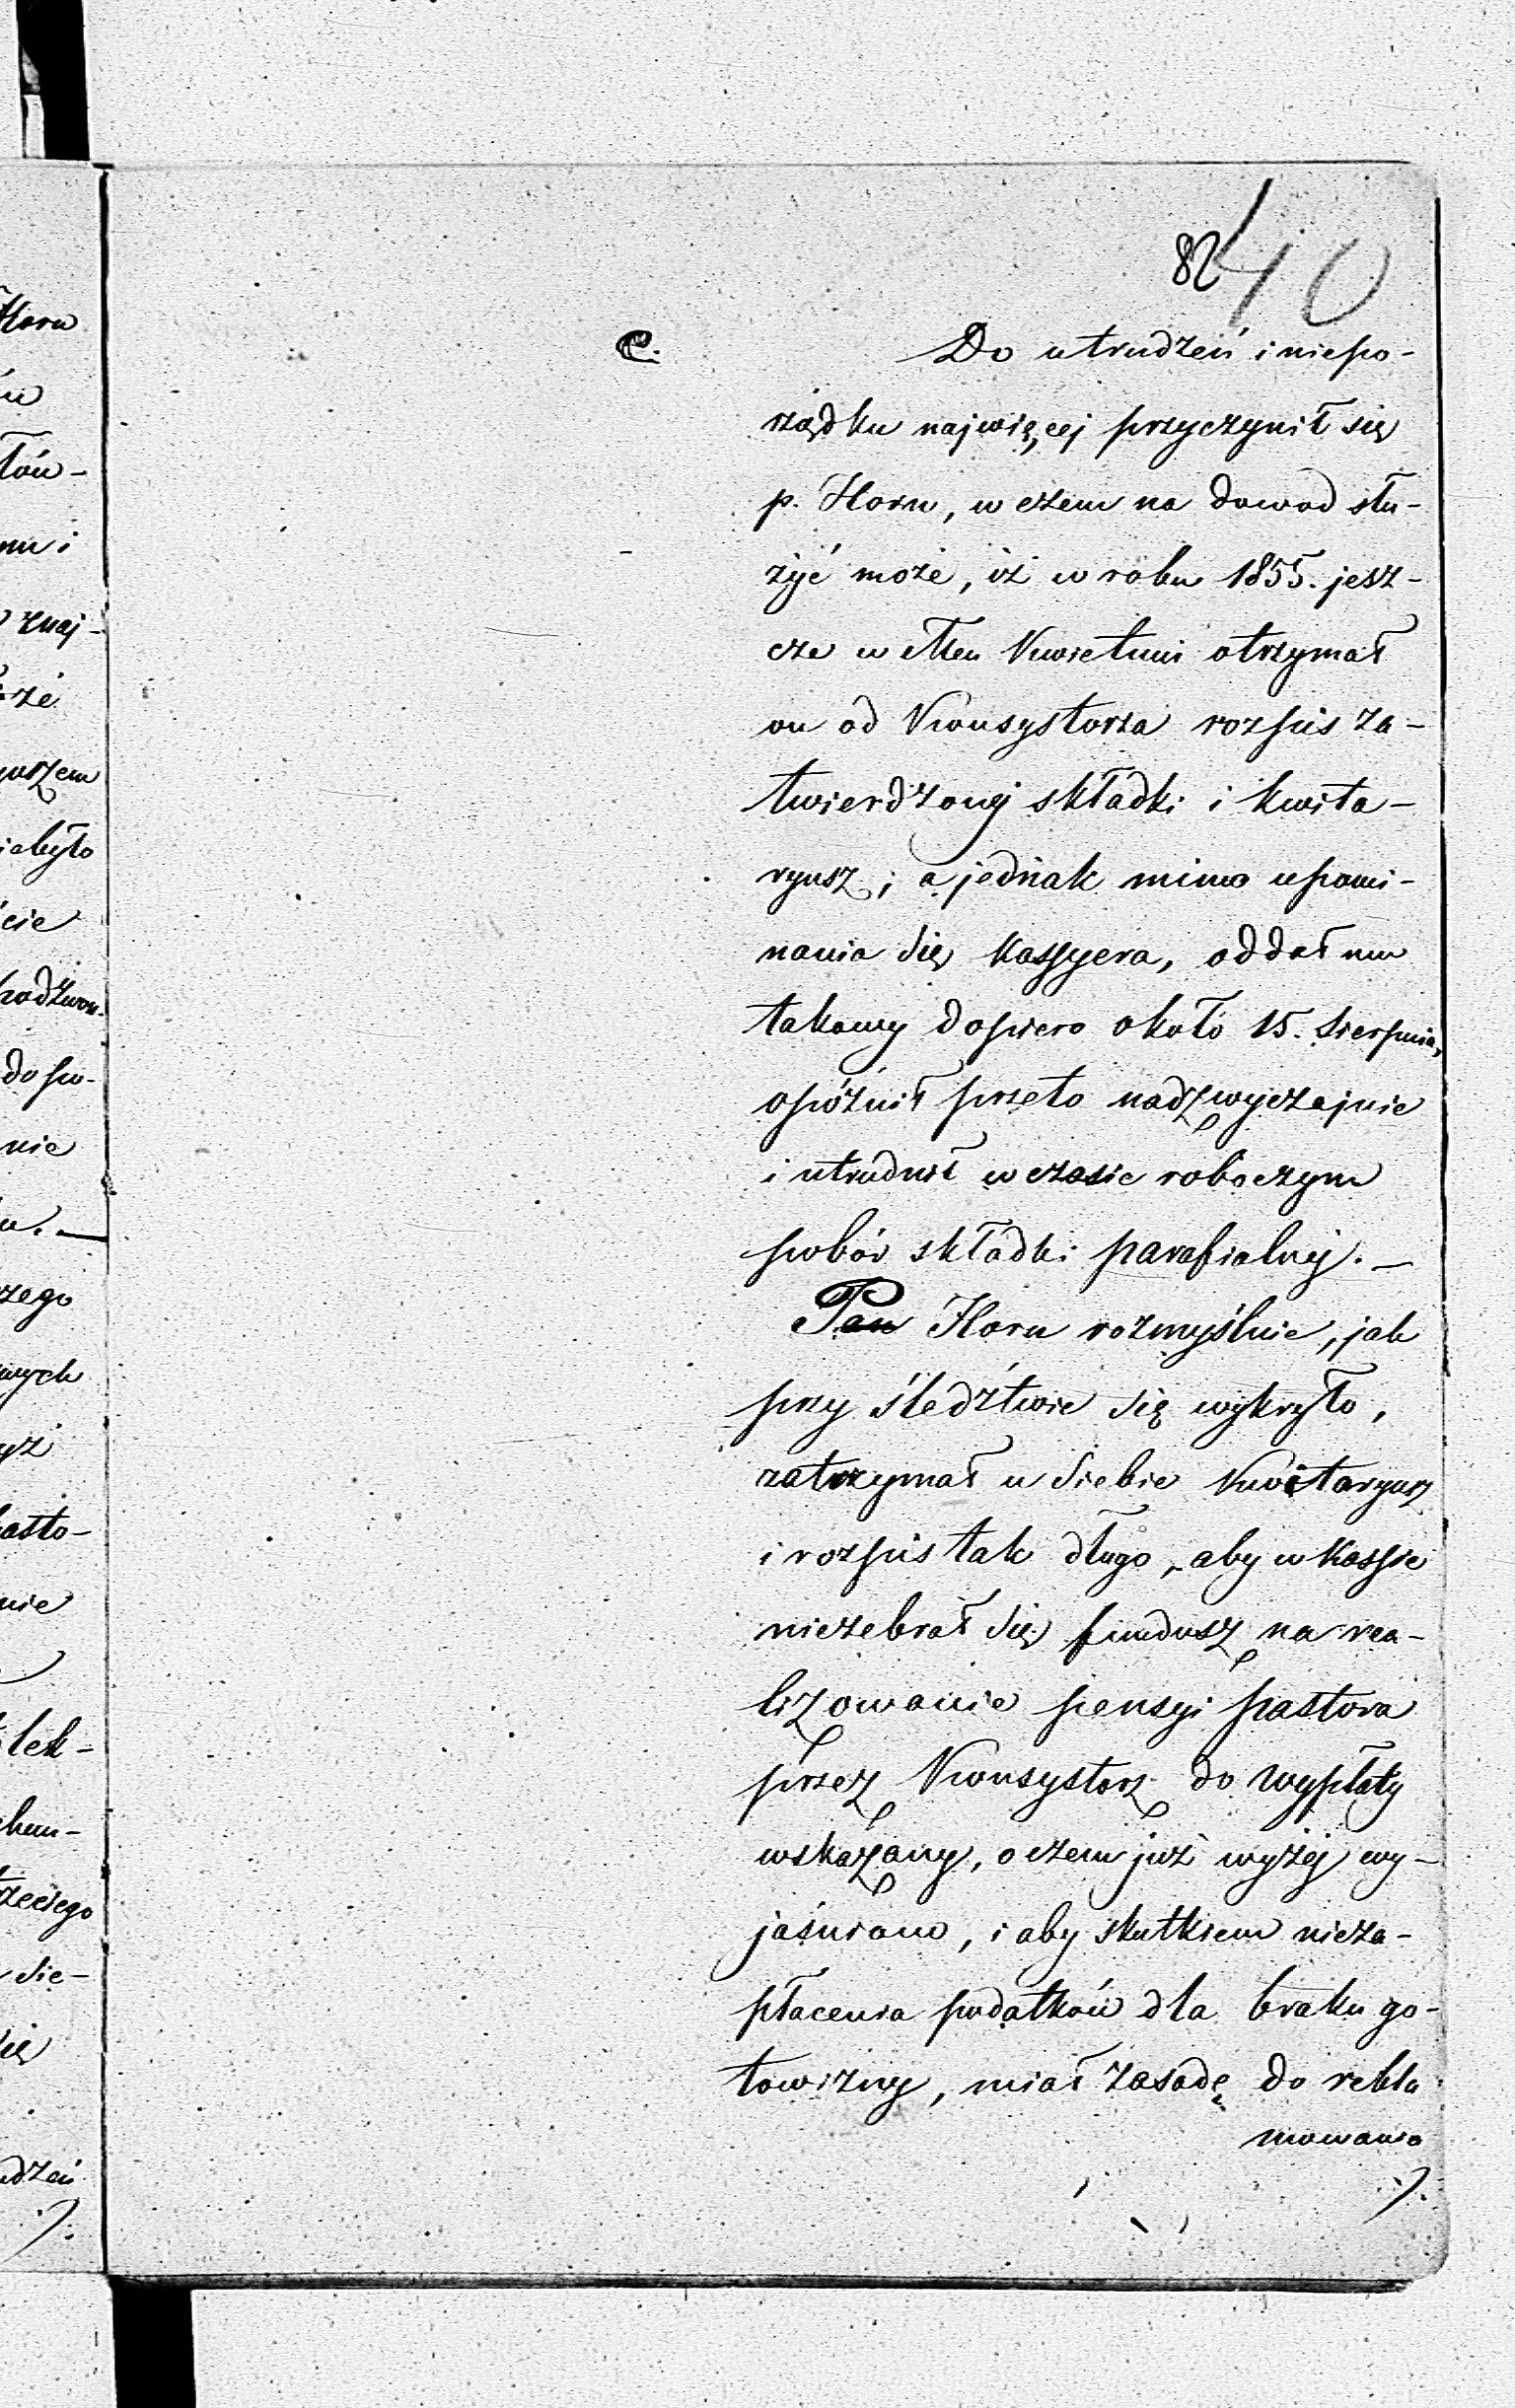 82 40
C. Do utrudzeń i niepo-
rządku najwięcej przyczynił się
p. Horn, w czem na dowod słu-
żyć może, iż w roku 1855. jesz-
cze w Mcu Kwietniu otrzymał
on od Konsystorza rozpis za-
twierdzonej składki i kwita-
ryusz; a jednak mimo upomi-
nania się kassyera, oddał mu
takowy dopiero około 15. Sierpnia,
opóźnił przeto nadzwyczajnie
i utrudnił w czasie roboczym
pobór składki parafialnej. —
Pan Horn rozmyślnie, jak
przy śledźtwie się wykryło,
zatrzymał u siebie Kwitaryusz
i rozpis tak długo, aby w Kassie
niezebrał się fundusz na rea-
lizowanie pensyi pastora
przez Konsystorz do wypłaty
wskazanej, o czem już wyżej wy-
jaśniono, i aby skutkiem nieza-
płacenia podatków dla braku go-
towizny, miał zasadę do rekla
mowania
Horn
łów-
mi i
znaj-
że
było
cie
dopo-
nie
u. —
nych
pasto-
nie
lek-
trzeciego
Sie-
się
udzeń